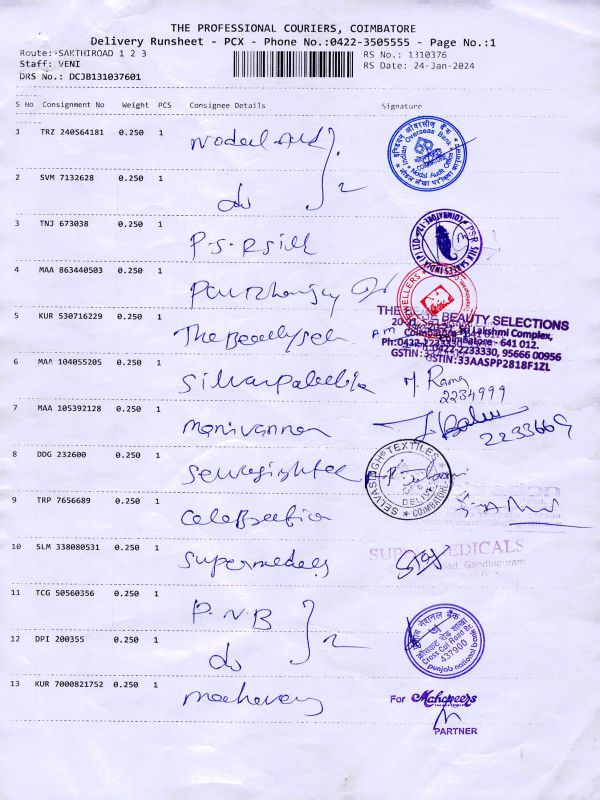 THE PROFESSIONAL COURIERS, COIMBATORE
Delivery Runsheet - PCX - Phone No.:0422-3505555 - Page No.:1
Route:-SAKTHIROAD 1 2 3
RS No.: 1310376
Staff: VENI
RS Date: 24-Jan-2024
DRS No.: DCJB131037601
S No Consignment No Weight PCS Consignee Details Signature
1 TRZ 240564181 0.250 1
इण्डियन ओवरसीज़ बैंक
Indian Overseas Bank
Nodal Audit Office
2 SVM 7132628 0.250 1 do 2
3 TNJ 673038 0.250 1 P.S.R Silk
P.S.R SILK SAREES INDIA (P) LTD COIMBATORE-12
4 MAA 863440503 0.250 1
JEWELLERS
5 KUR 530716229 0.250 1 The Beauty sel
THE BEAUTY SELECTIONS
Lakshmi Complex,
Coimbatore - 641 012.
Ph:0422-2233330, 95666 00956
GSTIN:33AASPP2818F1ZL
6 MAA 104055205 0.250 1
2234999
7 MAA 105392128 0.250 1 manivannan
2233669
8 DDG 232600 0.250 1
SELVASINGH TEXTILES
DELIVERY
COIMBATORE
9 TRP 7656689 0.250 1 Celebration
10 SLM 338080531 0.250 1 Supermedicals
SUPER MEDICALS
Road, Gandhipuram
11 TCG 50560356 0.250 1 P.N.B
12 DPI 200355 0.250 1 do 2
Cross Cut Road Br.
437900
punjab national bank
13 KUR 7000821752 0.250 1
For Mahaveers
PARTNER